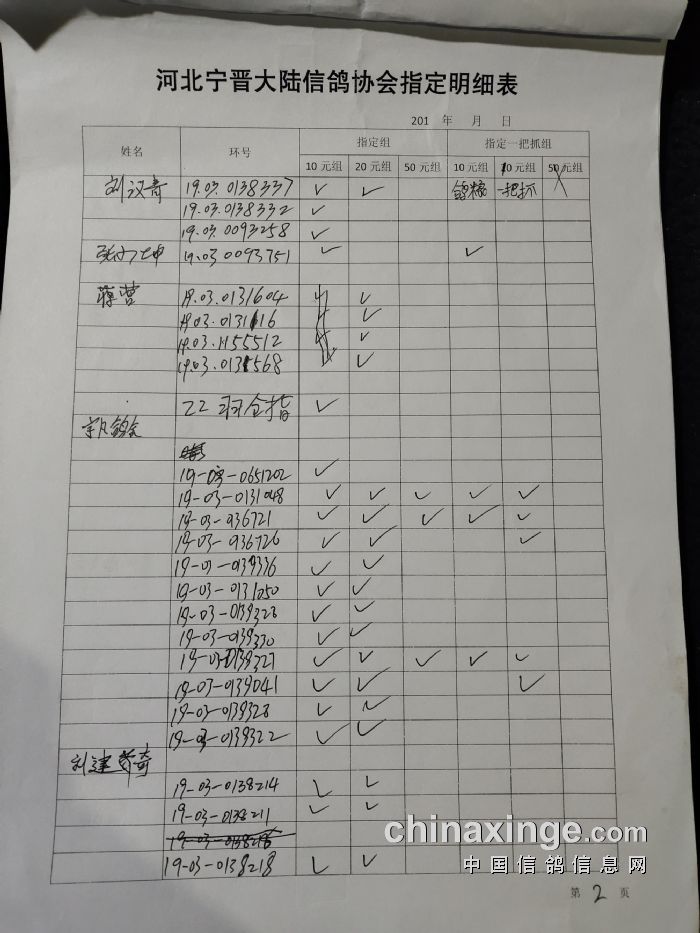 河北宁晋大陆信鸽协会指定明细表
201 年 月 日
姓名 环号 指定组 指定一把抓组
10元组 20元组 50元组 10元组 10元组 50元组
刘汉奇 19.03.0138337 ✓ ✓ 一把抓
19.03.0138332 ✓
19.03.0093258 ✓
19.03 0093751 ✓ ✓
蒋营 19.03.0131604 ✓
19.03.0131116 ✓
19.03.1155512 ✓
19.03.0131568 ✓
22 羽全指 ✓
19-03-0651202 ✓
19-03-0131048 ✓ ✓ ✓ ✓ ✓
19-03-936721 ✓ ✓ ✓ ✓ ✓
19-03-936726 ✓ ✓ ✓
19-03-0139336 ✓ ✓
19-03-0131050 ✓ ✓
19-03-0139328 ✓ ✓
19-03-0139330 ✓ ✓
19-03-0139327 ✓ ✓ ✓ ✓ ✓
19-03-0139041 ✓ ✓ ✓
19-03-0139328 ✓ ✓
19-03-0139322 ✓ ✓
刘建奇
19-03-0138214 ✓ ✓
19-03-0138211 ✓ ✓
19-03-0138218 ✓ ✓
chinaxinge.com
中国信鸽信息网
第 2 页